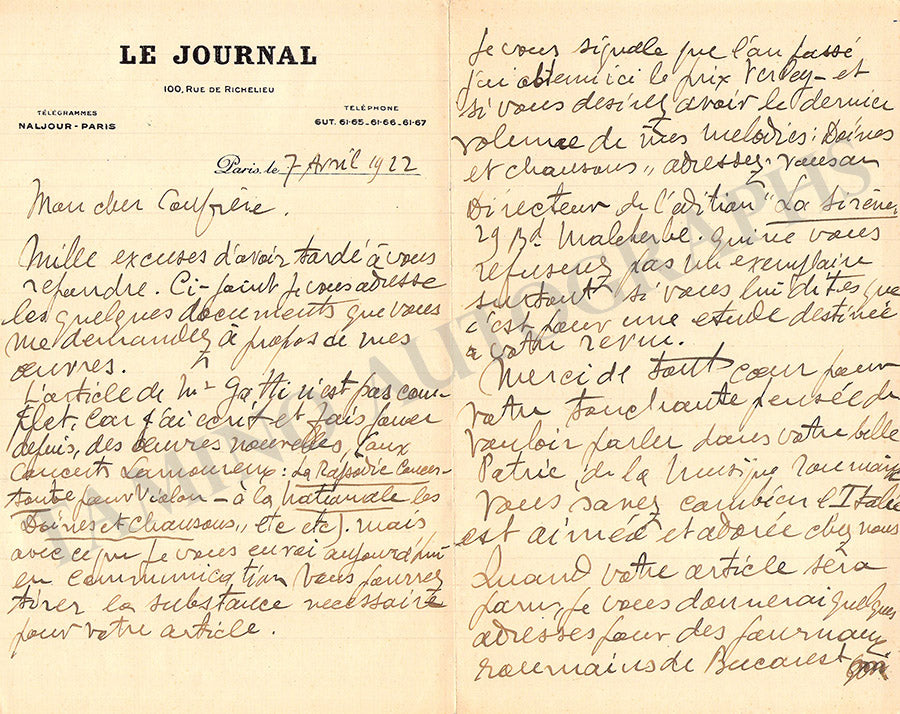 LE JOURNAL
100, RUE DE RICHELIEU
TÉLÉGRAMMES
NALJOUR-PARIS
TÉLÉPHONE
GUT. 61-65_61-66_61-67
Paris, le 7 Avril 1922
Mon cher Confrère.
Mille excuses d'avoir tardé à vous
repondre. Ci-joint Je vous adresse
les quelques documents que vous
me demandez à propos de mes
œuvres.
L'article de Mr Gatti n'est pas com-
plet, car j'ai ecrit et fais jouer
depuis, des œuvres nouvelles, (aux
Concerts Lamoureux: La Rapsodie Concer-
tante pour Violon - à la Nationale les
Doïnes et chansons,, etc etc). mais
avec ce que Je vous envoi aujourd'hui
en communication Vous pourrez
tirer la substance necessaire
pour votre article.
Je vous signale que l'an passé
j'ai obtenu ici le prix Verley - et
si vous desirez avoir le dernier
volume de mes melodies: Doïnes
et chansons,, adressez-vous au
Directeur de l'édition "La Sirène,
29 Bd Malherbe. qui ne vous
refuserez pas un exemplaire
surtout si vous lui dites que
c'est pour une etude destinée
à votre revue.
Merci de tout cœur pour
votre touchante pensée de
vouloir parler dans votre belle
Patrie de la Musique roumaine
Vous savez combien l'Italie
est aimée et adorée chez nous
Quand votre article sera
paru, Je vous donnerai quelques
adresses pour des Journaux
roumains de Bucarest
TAMINO AUTOGRAPHS